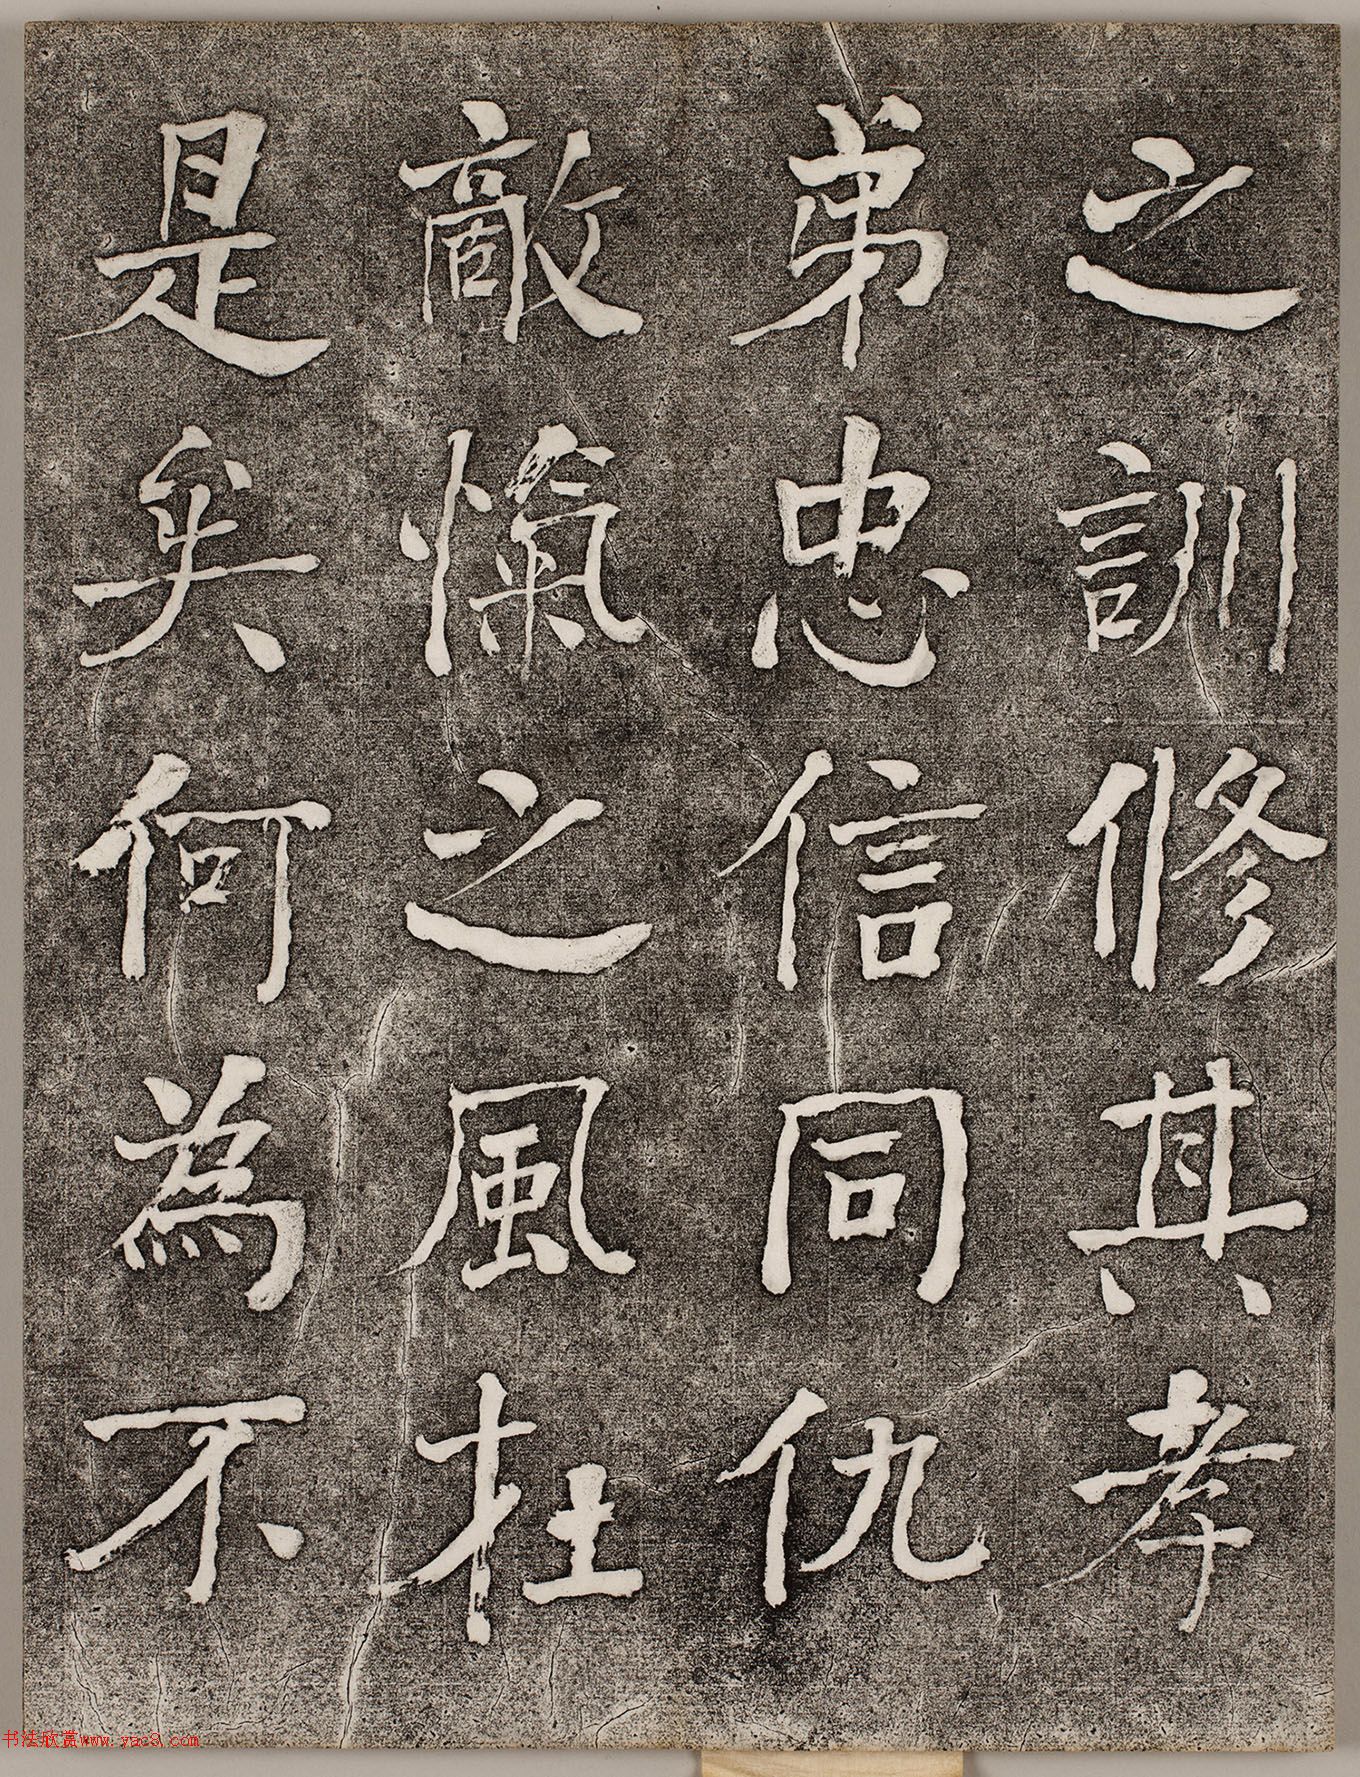 之訓修其孝
弟忠信同仇
敵愾之風在
是矣何為不
书法欣赏www.yac8.com